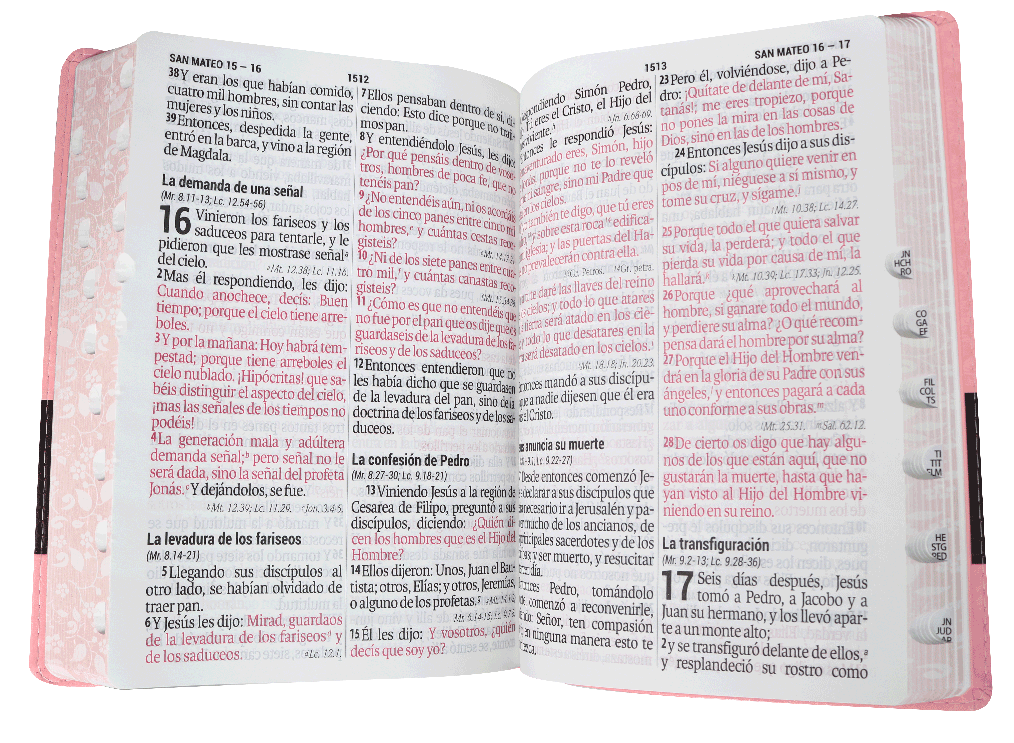 SAN MATEO 15 – 16
1512
38Y eran los que habían comido,
cuatro mil hombres, sin contar las
mujeres y los niños.
39Entonces, despedida la gente,
entró en la barca, y vino a la región
de Magdala.
La demanda de una señal
(Mr. 8.11-13; Lc. 12.54-56)
16 Vinieron los fariseos y los
saduceos para tentarle, y le
pidieron que les mostrase señalᵃ
del cielo.
ᵃMt. 12.38; Lc. 11.16.
2Mas él respondiendo, les dijo:
Cuando anochece, decís: Buen
tiempo; porque el cielo tiene arre-
boles.
3Y por la mañana: Hoy habrá tem-
pestad; porque tiene arreboles el
cielo nublado. ¡Hipócritas! que sa-
béis distinguir el aspecto del cielo,
¡mas las señales de los tiempos no
podéis!
4La generación mala y adúltera
demanda señal;ᵇ pero señal no le
será dada, sino la señal del profeta
Jonás.ᶜ Y dejándolos, se fue.
ᵇMt. 12.39; Lc. 11.29. ᶜJon. 3.4-5.
La levadura de los fariseos
(Mr. 8.14-21)
5Llegando sus discípulos al
otro lado, se habían olvidado de
traer pan.
6Y Jesús les dijo: Mirad, guardaos
de la levadura de los fariseosᵈ y
de los saduceos.
ᵈLc. 12.1.
7Ellos pensaban dentro de sí, di-
ciendo: Esto dice porque no traji-
mos pan.
8Y entendiéndolo Jesús, les dijo:
¿Por qué pensáis dentro de voso-
tros, hombres de poca fe, que no
tenéis pan?
9¿No entendéis aún, ni os acordáis
de los cinco panes entre cinco mil
hombres,ᵉ y cuántas cestas reco-
gisteis?
10¿Ni de los siete panes entre cua-
tro mil,ᶠ y cuántas canastas reco-
gisteis?
11¿Cómo es que no entendéis que
no fue por el pan que os dije que os
guardaseis de la levadura de los fa-
riseos y de los saduceos?
12Entonces entendieron que no
les había dicho que se guardasen
de la levadura del pan, sino de la
doctrina de los fariseos y de los sa-
duceos.
La confesión de Pedro
(Mr. 8.27-30; Lc. 9.18-21)
13Viniendo Jesús a la región de
Cesarea de Filipo, preguntó a sus
discípulos, diciendo: ¿Quién di-
cen los hombres que es el Hijo del
Hombre?
14Ellos dijeron: Unos, Juan el Bau-
tista; otros, Elías; y otros, Jeremías,
o alguno de los profetas.
Mr. 6.14-15; Lc. 9.7-8.
15Él les dijo: Y vosotros, ¿quién
decís que soy yo?
1513
SAN MATEO 16 – 17
Simón Pedro,
eres el Cristo, el Hijo del
Jn. 6.68-69.
le respondió Jesús:
eres, Simón, hijo
porque no te lo reveló
sangre, sino mi Padre que
en los cielos.
también te digo, que tú eres
y sobre esta roca edifica-
iglesia; y las puertas del Ha-
prevalecerán contra ella.
Gr. Petros. Gr. petra.
te daré las llaves del reino
cielos; y todo lo que atares
tierra será atado en los cie-
todo lo que desatares en la
será desatado en los cielos.
Mt. 18.18; Jn. 20.23.
mandó a sus discípu-
a nadie dijesen que él era
el Cristo.
anuncia su muerte
Lc. 9.22-27)
Desde entonces comenzó Je-
declarar a sus discípulos que
necesario ir a Jerusalén y pa-
mucho de los ancianos, de
principales sacerdotes y de los
y ser muerto, y resucitar
día.
Pedro, tomándolo
comenzó a reconvenirle,
Señor, ten compasión
en ninguna manera esto te
23Pero él, volviéndose, dijo a Pe-
dro: ¡Quítate de delante de mí, Sa-
tanás!; me eres tropiezo, porque
no pones la mira en las cosas de
Dios, sino en las de los hombres.
24Entonces Jesús dijo a sus dis-
cípulos: Si alguno quiere venir en
pos de mí, niéguese a sí mismo, y
tome su cruz, y sígame.
Mt. 10.38; Lc. 14.27.
25Porque todo el que quiera salvar
su vida, la perderá; y todo el que
pierda su vida por causa de mí, la
hallará.
Mt. 10.39; Lc. 17.33; Jn. 12.25.
26Porque ¿qué aprovechará al
hombre, si ganare todo el mundo,
y perdiere su alma? ¿O qué recom-
pensa dará el hombre por su alma?
27Porque el Hijo del Hombre ven-
drá en la gloria de su Padre con sus
ángeles, y entonces pagará a cada
uno conforme a sus obras.ᵐ
Mt. 25.31. ᵐSal. 62.12.
28De cierto os digo que hay algu-
nos de los que están aquí, que no
gustarán la muerte, hasta que ha-
yan visto al Hijo del Hombre vi-
niendo en su reino.
La transfiguración
(Mr. 9.2-13; Lc. 9.28-36)
17 Seis días después, Jesús
tomó a Pedro, a Jacobo y a
Juan su hermano, y los llevó apar-
te a un monte alto;
2y se transfiguró delante de ellos,ᵃ
y resplandeció su rostro como
JN
HCH
RO
CO
GA
EF
FIL
COL
TS
TI
TIT
FLM
HE
STG
PED
JN
JUD
AP